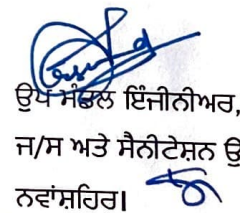 ਉਪ ਮੰਡਲ ਇੰਜੀਨੀਅਰ,
ਜ/ਸ ਅਤੇ ਸੈਨੀਟੇਸ਼ਨ
ਨਵਾਂਸ਼ਹਿਰ।